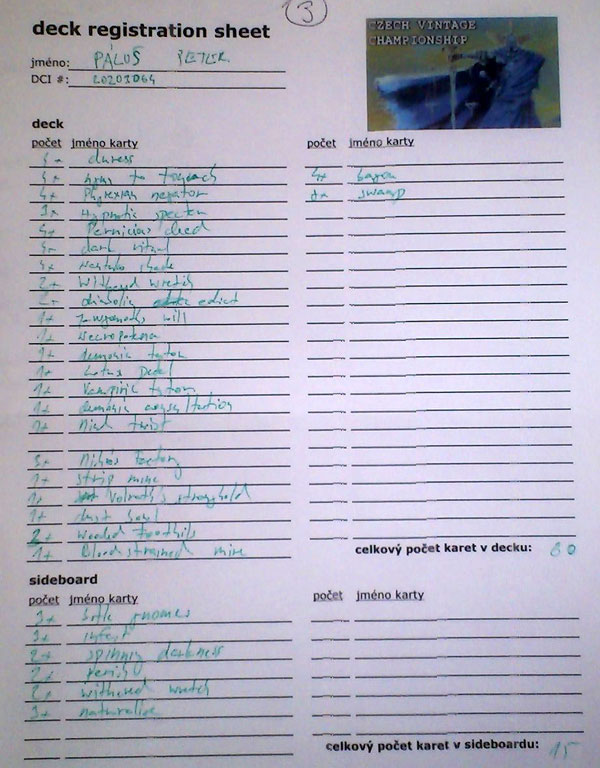 3
deck registration sheet
CZECH VINTAGE
CHAMPIONSHIP
jméno: PÁLOŠ PETER
DCI #: 20203064
deck
počet jméno karty
duress
hymn to tourach
4x Phyrexian negator
3x Hypnotic specter
Pernicious deed
dark ritual
Nantuko shade
2x Withered wretch
2x diabolic edict
1x Yawgmoth's will
1x Necropotence
1x demonic tutor
1x Lotus Petal
1x Vampiric tutor
1x demonic consultation
1x Mind twist
3x Mishra's Factory
1x strip mine
1x Volrath's stronghold
1x dust bowl
2x Wooded Foothills
1x Bloodstained mire
počet jméno karty
4x bayou
swamp
celkový počet karet v decku: 60
sideboard
počet jméno karty
3x bottle gnomes
3x infest
2x spinning darkness
2x
2x withered wretch
3x naturalize
počet jméno karty
celkový počet karet v sideboardu: 15